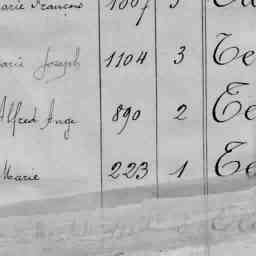 arie François 1007 3
arie Joseph 1104 3 Te
Alfred Ange 890 2 Te
Marie 223 1 Te